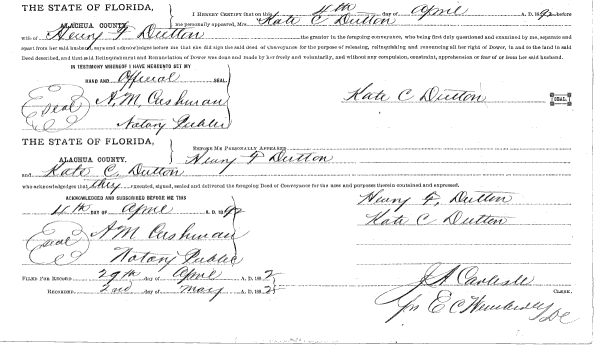 THE STATE OF FLORIDA,
ALACHUA COUNTY.
I HEREBY CERTIFY that on this 4th day of April A. D. 1892 before
me personally appeared, Mrs. Kate C Dutton
wife of Henry F Dutton the grantor in the foregoing conveyance, who being first duly questioned and examined by me, separate and
apart from her said husband, says and acknowledges before me that she did sign the said deed of conveyance for the purpose of releasing, relinquishing and renouncing all her right of Dower, in and to the land in said
Deed described, and that said Relinquishment and Renunciation of Dower was done and made by her freely and voluntarily, and without any compulsion, constraint, apprehension or fear of or from her said husband.
IN TESTIMONY WHEREOF I HAVE HEREUNTO SET MY
HAND AND Official SEAL:
Seal A. M. Cushman Kate C Dutton SEAL.
Notary Public
THE STATE OF FLORIDA,
ALACHUA COUNTY.
BEFORE ME PERSONALLY APPEARED
Henry F Dutton
and Kate C. Dutton
who acknowledges that they executed, signed, sealed and delivered the foregoing Deed of Conveyance for the uses and purposes therein contained and expressed.
ACKNOWLEDGED AND SUBSCRIBED BEFORE ME THIS
4th DAY OF April A. D. 1892
Henry F. Dutton
Kate C Dutton
Seal A M Cushman
Notary Public
FILED FOR RECORD 29th day of April A. D. 1892
RECORDED 2nd day of May A. D. 1892
J A Carlisle CLERK.
E C